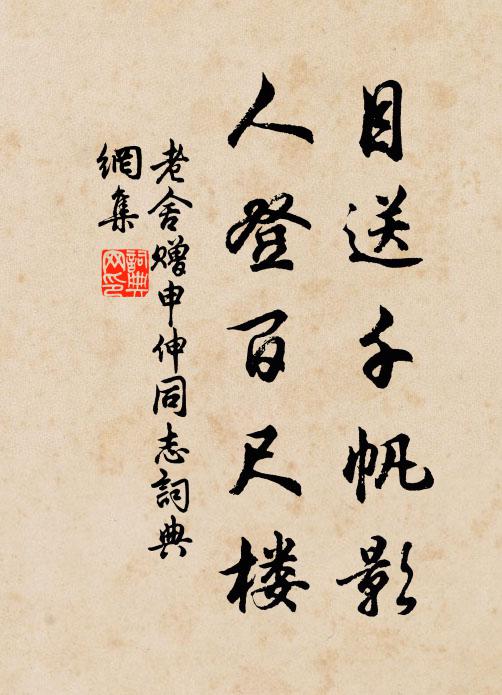 目送千帆影
人登百尺楼
老舍赠申伸同志詞典
網集
詞典
网印